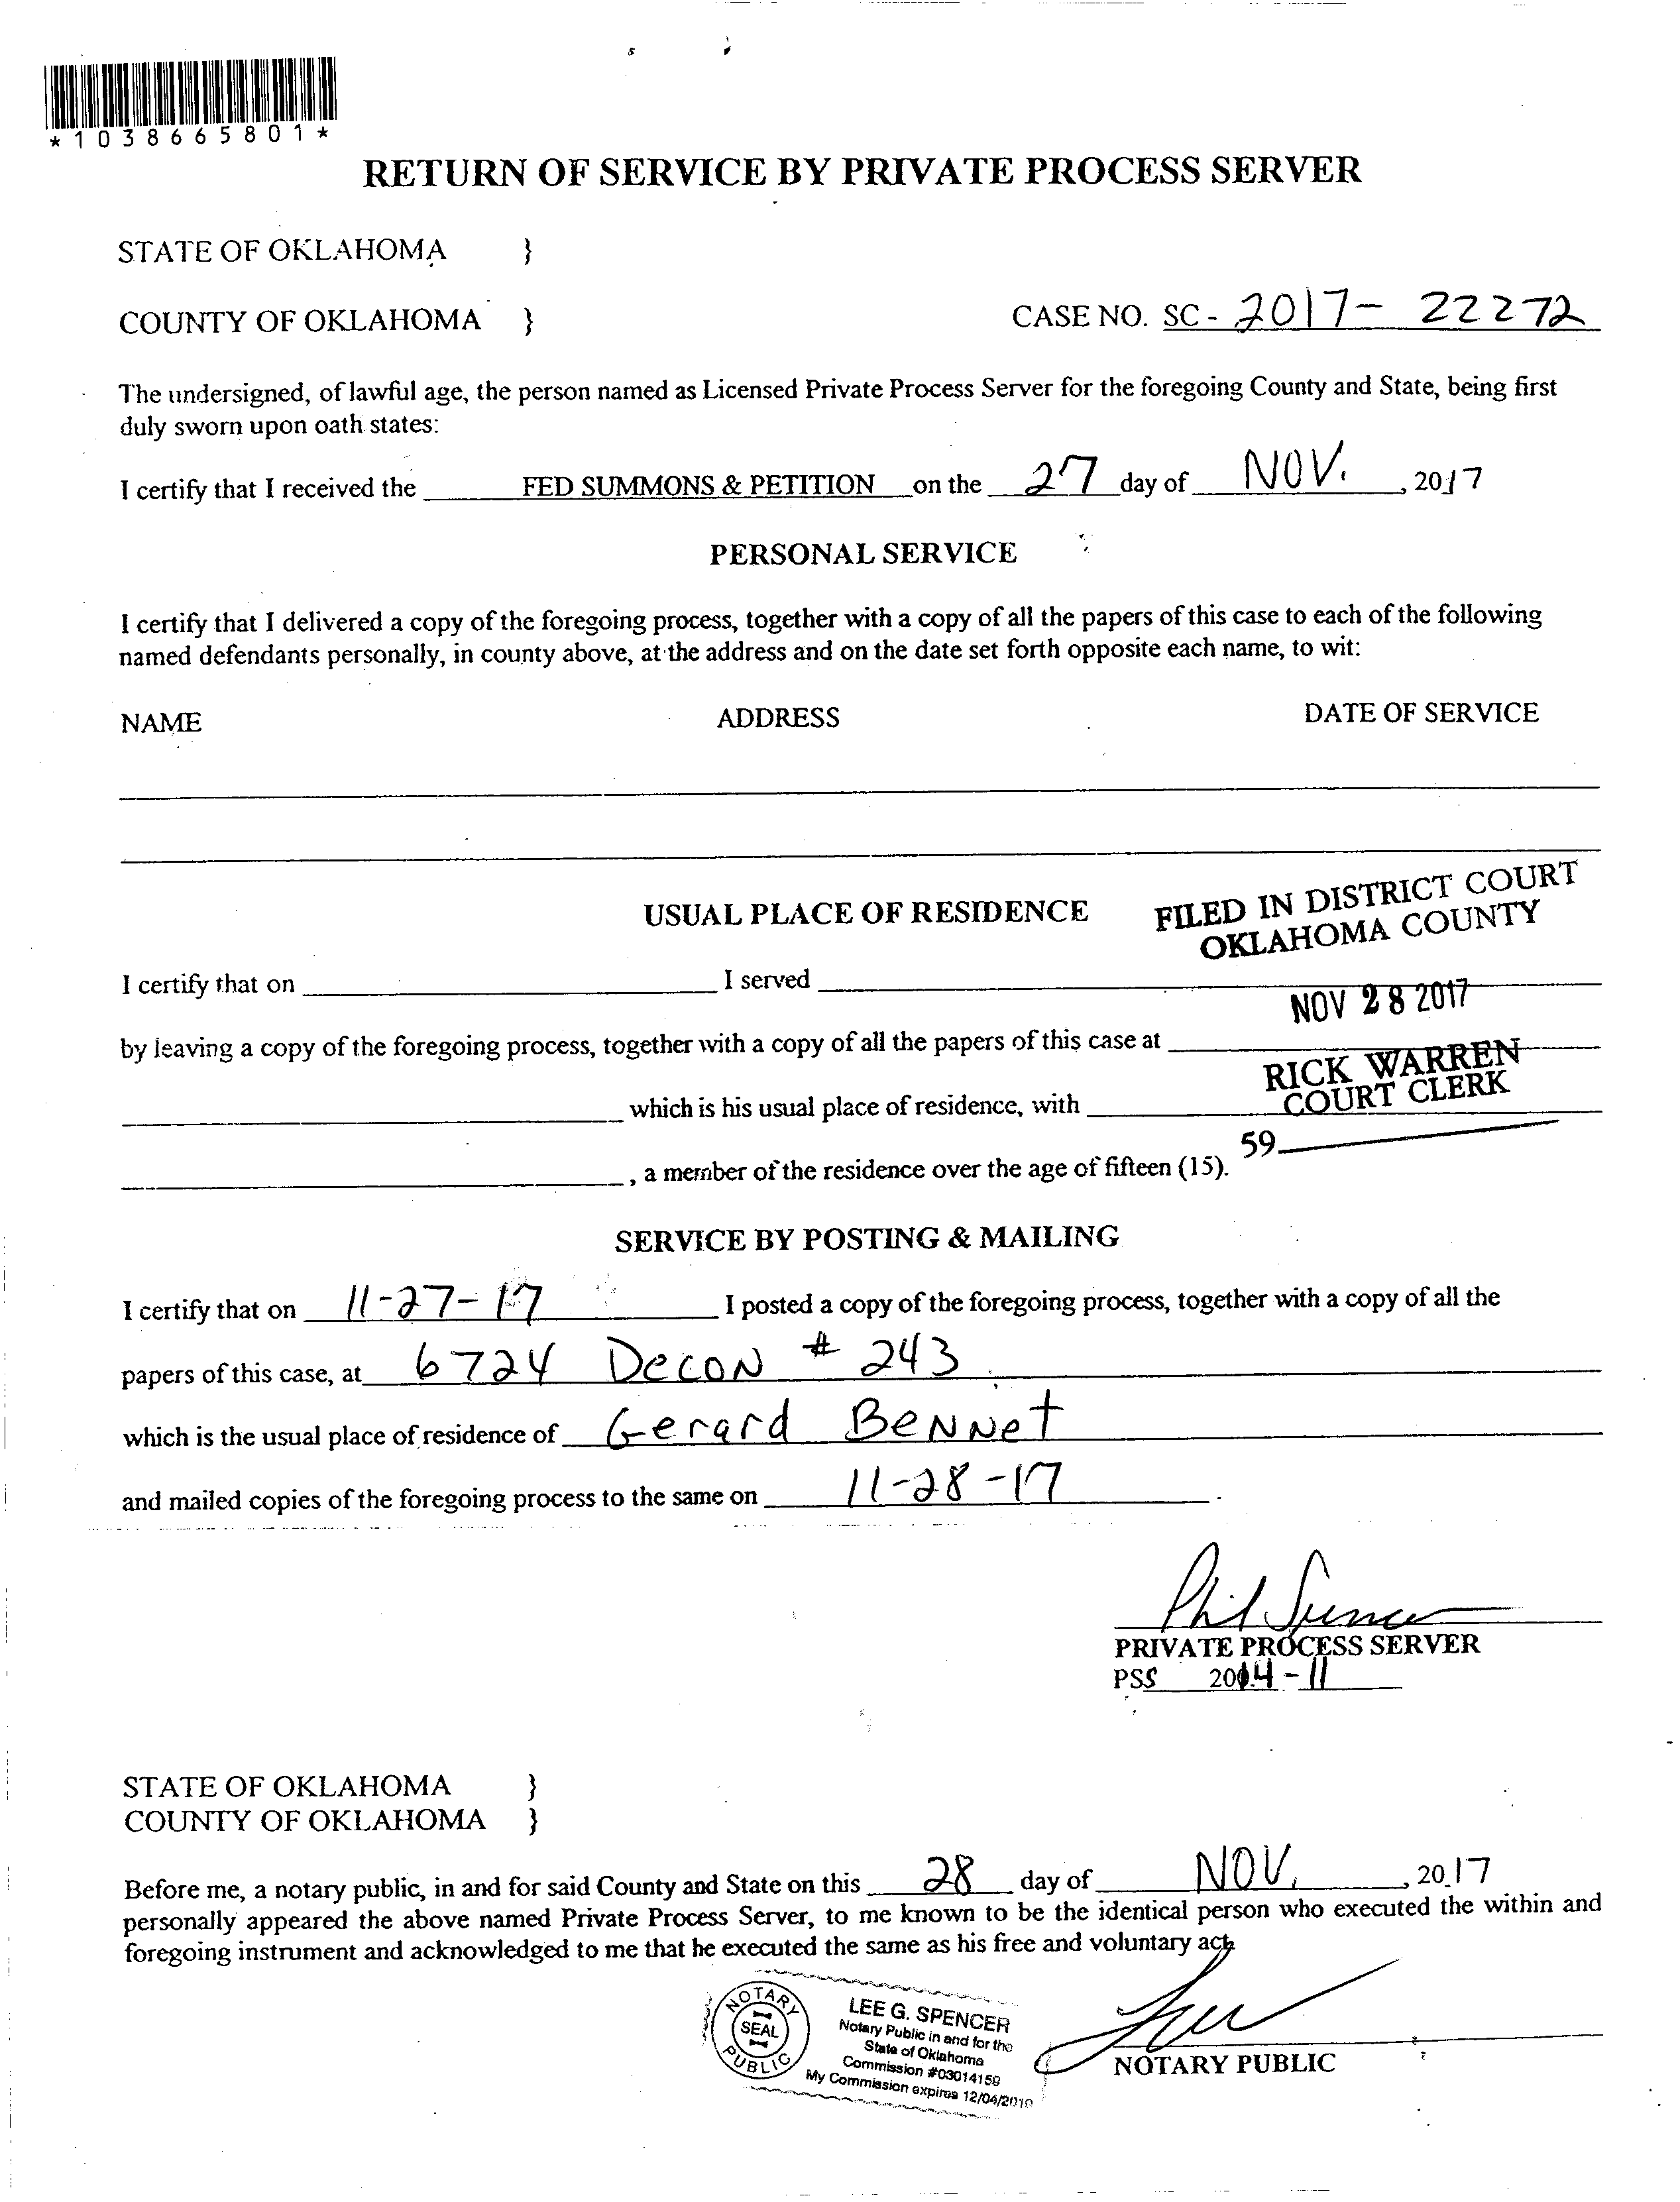 *1038665801*
RETURN OF SERVICE BY PRIVATE PROCESS SERVER
STATE OF OKLAHOMA }
COUNTY OF OKLAHOMA } CASE NO. SC - 2017- 22272
The undersigned, of lawful age, the person named as Licensed Private Process Server for the foregoing County and State, being first
duly sworn upon oath states:
I certify that I received the FED SUMMONS & PETITION on the 27 day of NOV. , 2017
PERSONAL SERVICE
I certify that I delivered a copy of the foregoing process, together with a copy of all the papers of this case to each of the following
named defendants personally, in county above, at the address and on the date set forth opposite each name, to wit:
NAME ADDRESS DATE OF SERVICE
FILED IN DISTRICT COURT
OKLAHOMA COUNTY
USUAL PLACE OF RESIDENCE
I certify that on I served
NOV 28 2017
by leaving a copy of the foregoing process, together with a copy of all the papers of this case at
RICK WARREN
COURT CLERK
which is his usual place of residence, with
59
, a member of the residence over the age of fifteen (15).
SERVICE BY POSTING & MAILING
I certify that on 11-27-17 I posted a copy of the foregoing process, together with a copy of all the
papers of this case, at 6724 Decon # 243
which is the usual place of residence of Gerard Bennet
and mailed copies of the foregoing process to the same on 11-28-17 .
Phil Spencer
PRIVATE PROCESS SERVER
PSS 2014-11
STATE OF OKLAHOMA }
COUNTY OF OKLAHOMA }
Before me, a notary public, in and for said County and State on this 28 day of NOV. , 2017
personally appeared the above named Private Process Server, to me known to be the identical person who executed the within and
foregoing instrument and acknowledged to me that he executed the same as his free and voluntary act.
NOTARY
SEAL
PUBLIC
LEE G. SPENCER
Notary Public in and for the
State of Oklahoma
Commission #03014159
My Commission expires 12/04/2019
NOTARY PUBLIC